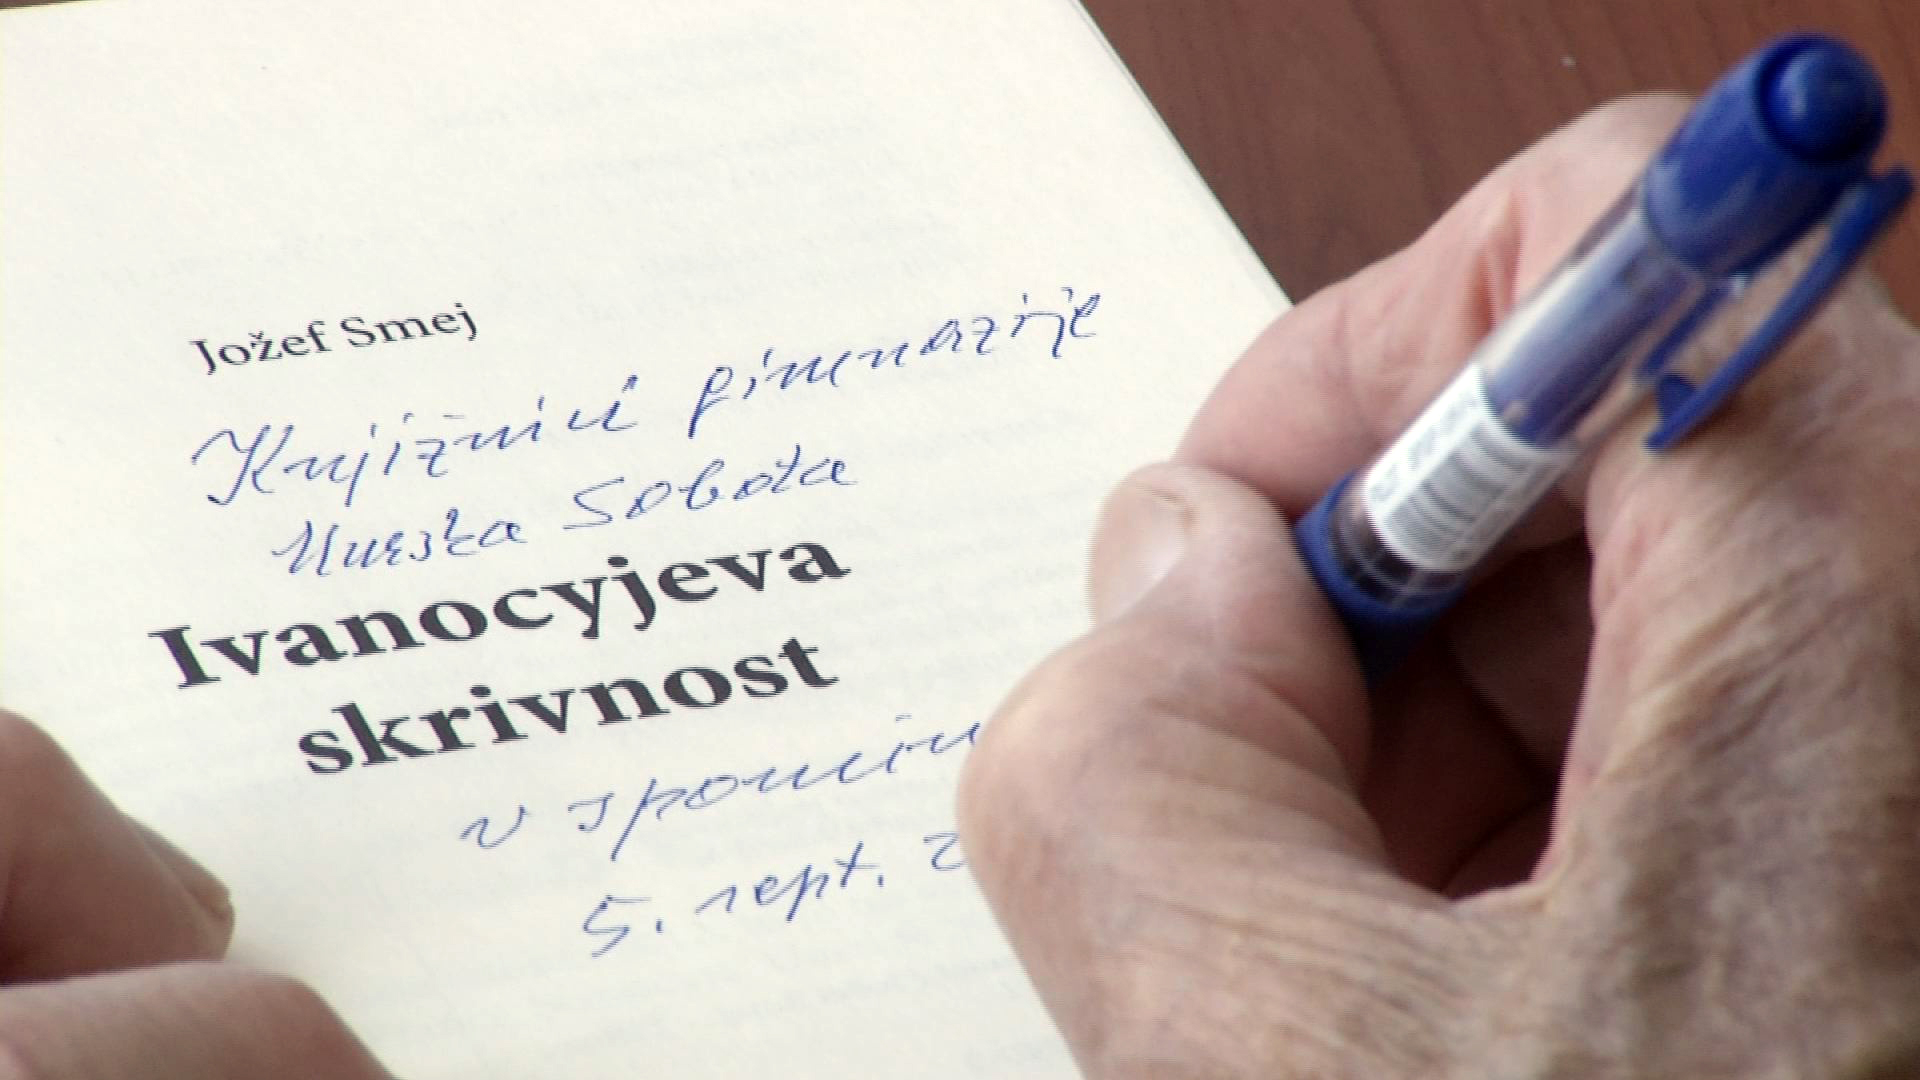 Jožef Smej
Knjižnici gimnazije
Murska Sobota
Ivanocyjeva
skrivnost
v spomin
5. sept. 2